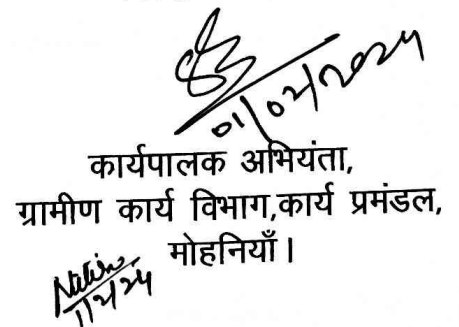 01/02/2024
कार्यपालक अभियंता,
ग्रामीण कार्य विभाग,कार्य प्रमंडल,
मोहनियाँ।
Nitin
1/2/24